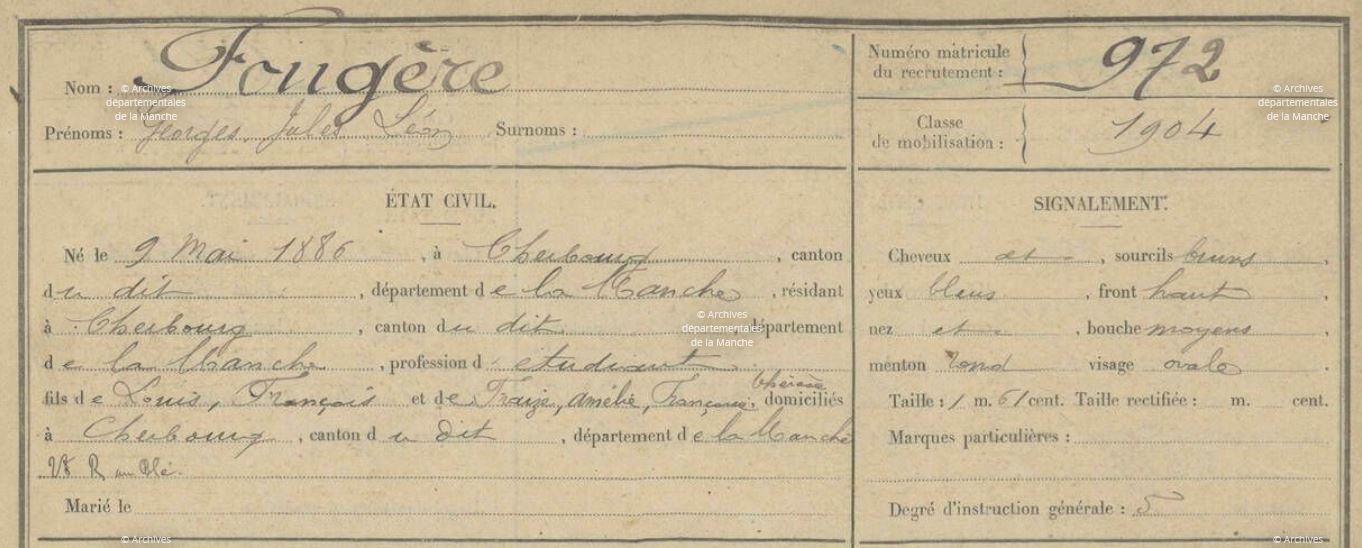 Nom : Fougère
Numéro matricule du recrutement : 972
Prénoms : Georges, Jules Léon Surnoms :
Classe de mobilisation : 1904
ÉTAT CIVIL.
Né le 9 Mai 1886, à Cherbourg, canton
du dit, département de la Manche, résidant
à Cherbourg, canton du dit département
de la Manche, profession d étudiant
fils de Louis, François et de Fraize, Amélie, Françoise, Thérèse domiciliés
à Cherbourg, canton du dit, département de la Manche
R. au Blé.
Marié le
SIGNALEMENT.
Cheveux et, sourcils bruns,
yeux bleus, front haut,
nez et, bouche moyens,
menton rond visage ovale
Taille : 1 m. 61 cent. Taille rectifiée : m. cent.
Marques particulières :
Degré d'instruction générale : 5
© Archives départementales de la Manche
© Archives départementales de la Manche
© Archives départementales de la Manche
© Archives
© Archives